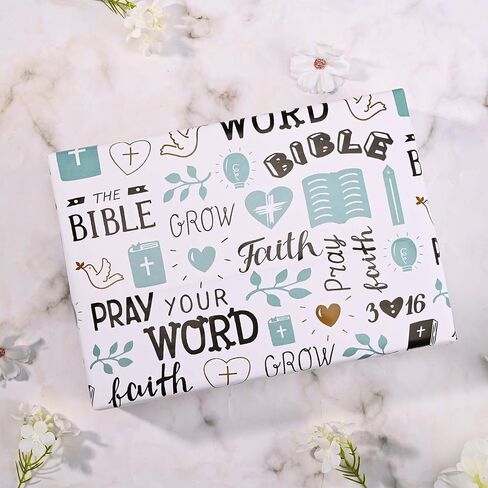 WORD
BIBLE
THE
BIBLE
GROW
Faith
Pray
faith
PRAY YOUR
WORD
3 16
faith
GROW